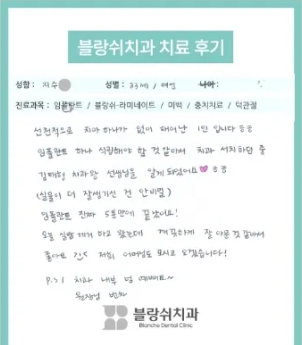 블랑쉬치과 치료 후기
성함 : 지수
성별 : 33세 / 여인
나이 :
진료과목 : 임플란트 / 블랑쉬-라미네이트 / 미백 / 충치치료 / 턱관절
선천적으로 치아 하나가 없이 태어난 1인 입니다 ㅎㅎ
임플란트 하나 식립해야 할 것 같아서 치과 서치하던 중
치과 선생님을 알게 되었어요♥ ㅎㅎ
(실물이 더 잘생기신 건 안비밀)
임플란트 진짜 5분만에 끝났어요!
오늘 실밥 제거 하고 왔는데 깨끗하게 잘 아문 것 같아서
좋아요 저희 어머님도 모시고 오겠습니다!
P.S) 치과 내부 넘 예뻐요~
원장님 번창
블랑쉬치과
Blanche Dental Clinic